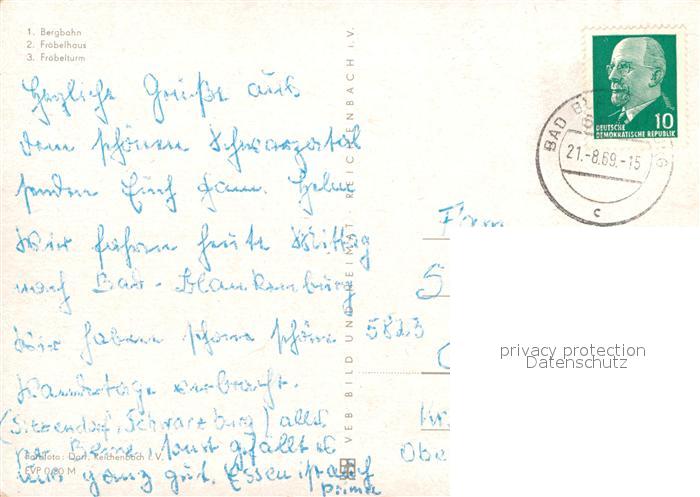 1. Bergbahn
2. Fröbelhaus
3. Fröbelturm
Herzliche Grüße aus
dem schönen Schwarzatal
senden Euch Fam.
Wir fahren heute Mittag
nach Bad-Blankenburg
Wir haben schon schöne
Wandertage verbracht.
(Sitzendorf, Schwarzburg) alles
per Beine sonst gefällt es
uns ganz gut. Essen ist auch
prima
Farbfoto: Darr, Reichenbach i. V.
EVP 0,20 M
VEB BILD UND HEIMAT · REICHENBACH I. V.
DEUTSCHE
DEMOKRATISCHE REPUBLIK
10
BAD BL
21.-8.69.-15
c
Fam
5823
Kr.
Obe
privacy protection
Datenschutz